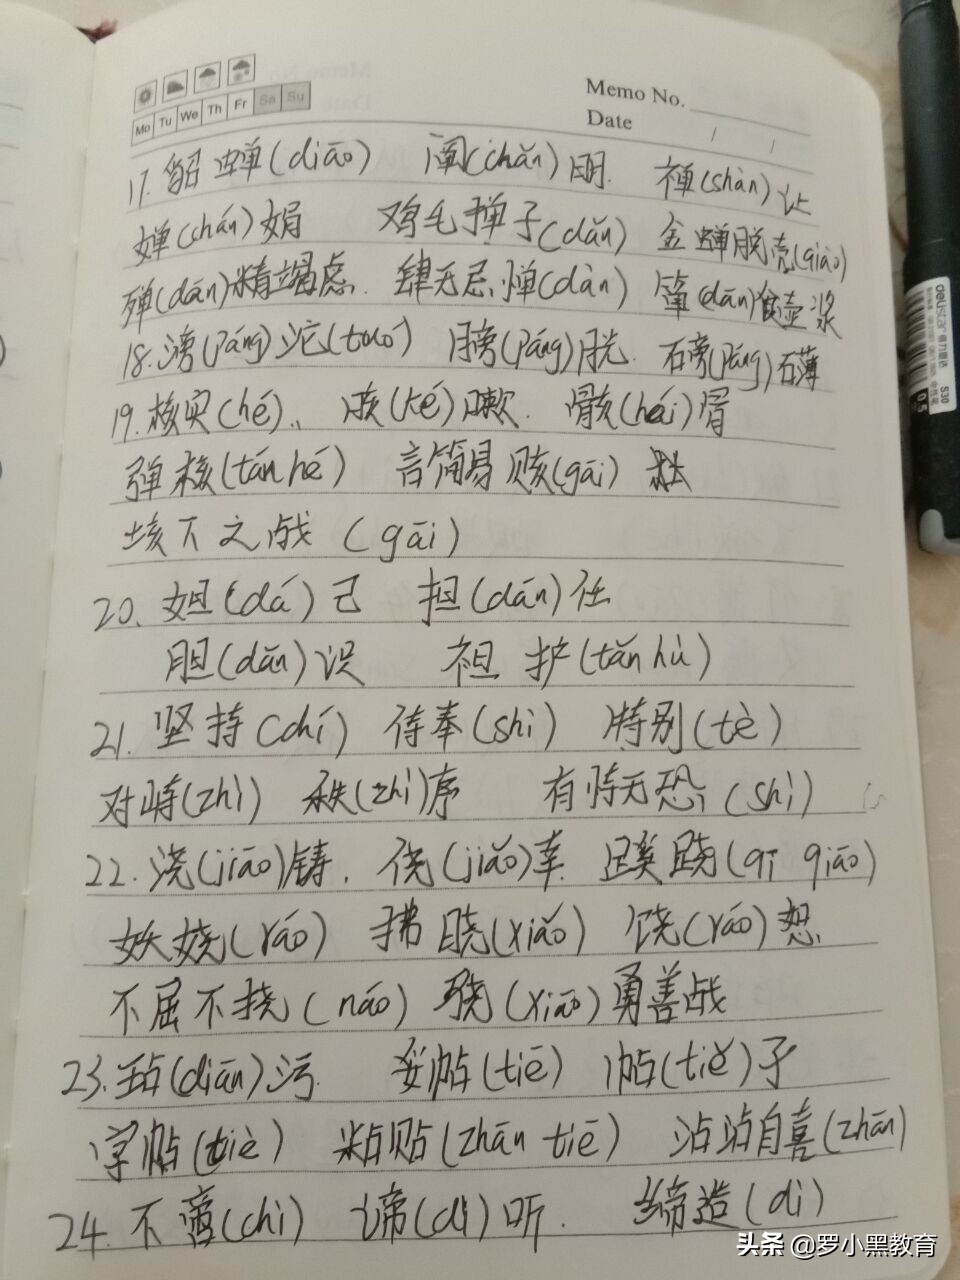 Memo No.
Mo Tu We Th Fr Sa Su
Date
17. 貂蝉(diāo) 阐(chǎn)明. 禅(shàn)让
婵(chán)娟 鸡毛掸子(dǎn) 金蝉脱壳(qiào)
殚(dān)精竭虑. 肆无忌惮(dàn) 箪(dān)食壶浆
18. 滂(pāng)沱(tuó) 膀(páng)胱. 磅(páng)礴
19. 核实(hé)、 咳(ké)嗽. 骸(hái)骨
弹核(tán hé) 言简易赅(gāi)
垓下之战 (gāi)
20. 妲(dá)己 担(dān)任
胆(dǎn)识 袒护(tǎn hù)
21. 坚持(chí) 侍奉(shì) 特别(tè)
对峙(zhì) 秩(zhì)序 有恃无恐(shì)
22. 浇(jiāo)铸. 侥(jiǎo)幸. 蹊跷(qī qiāo)
妖娆(ráo) 拂晓(xiǎo) 饶(ráo)恕
不屈不挠(náo) 骁(xiāo)勇善战
23. 玷(diàn)污 妥帖(tiē) 帖(tiě)子
字帖(tiè) 粘贴(zhān tiē) 沾沾自喜(zhān)
24. 不啻(chì) 谛(dì)听. 缔造(dì)
deli
S30
0.5
头条 @罗小黑教育